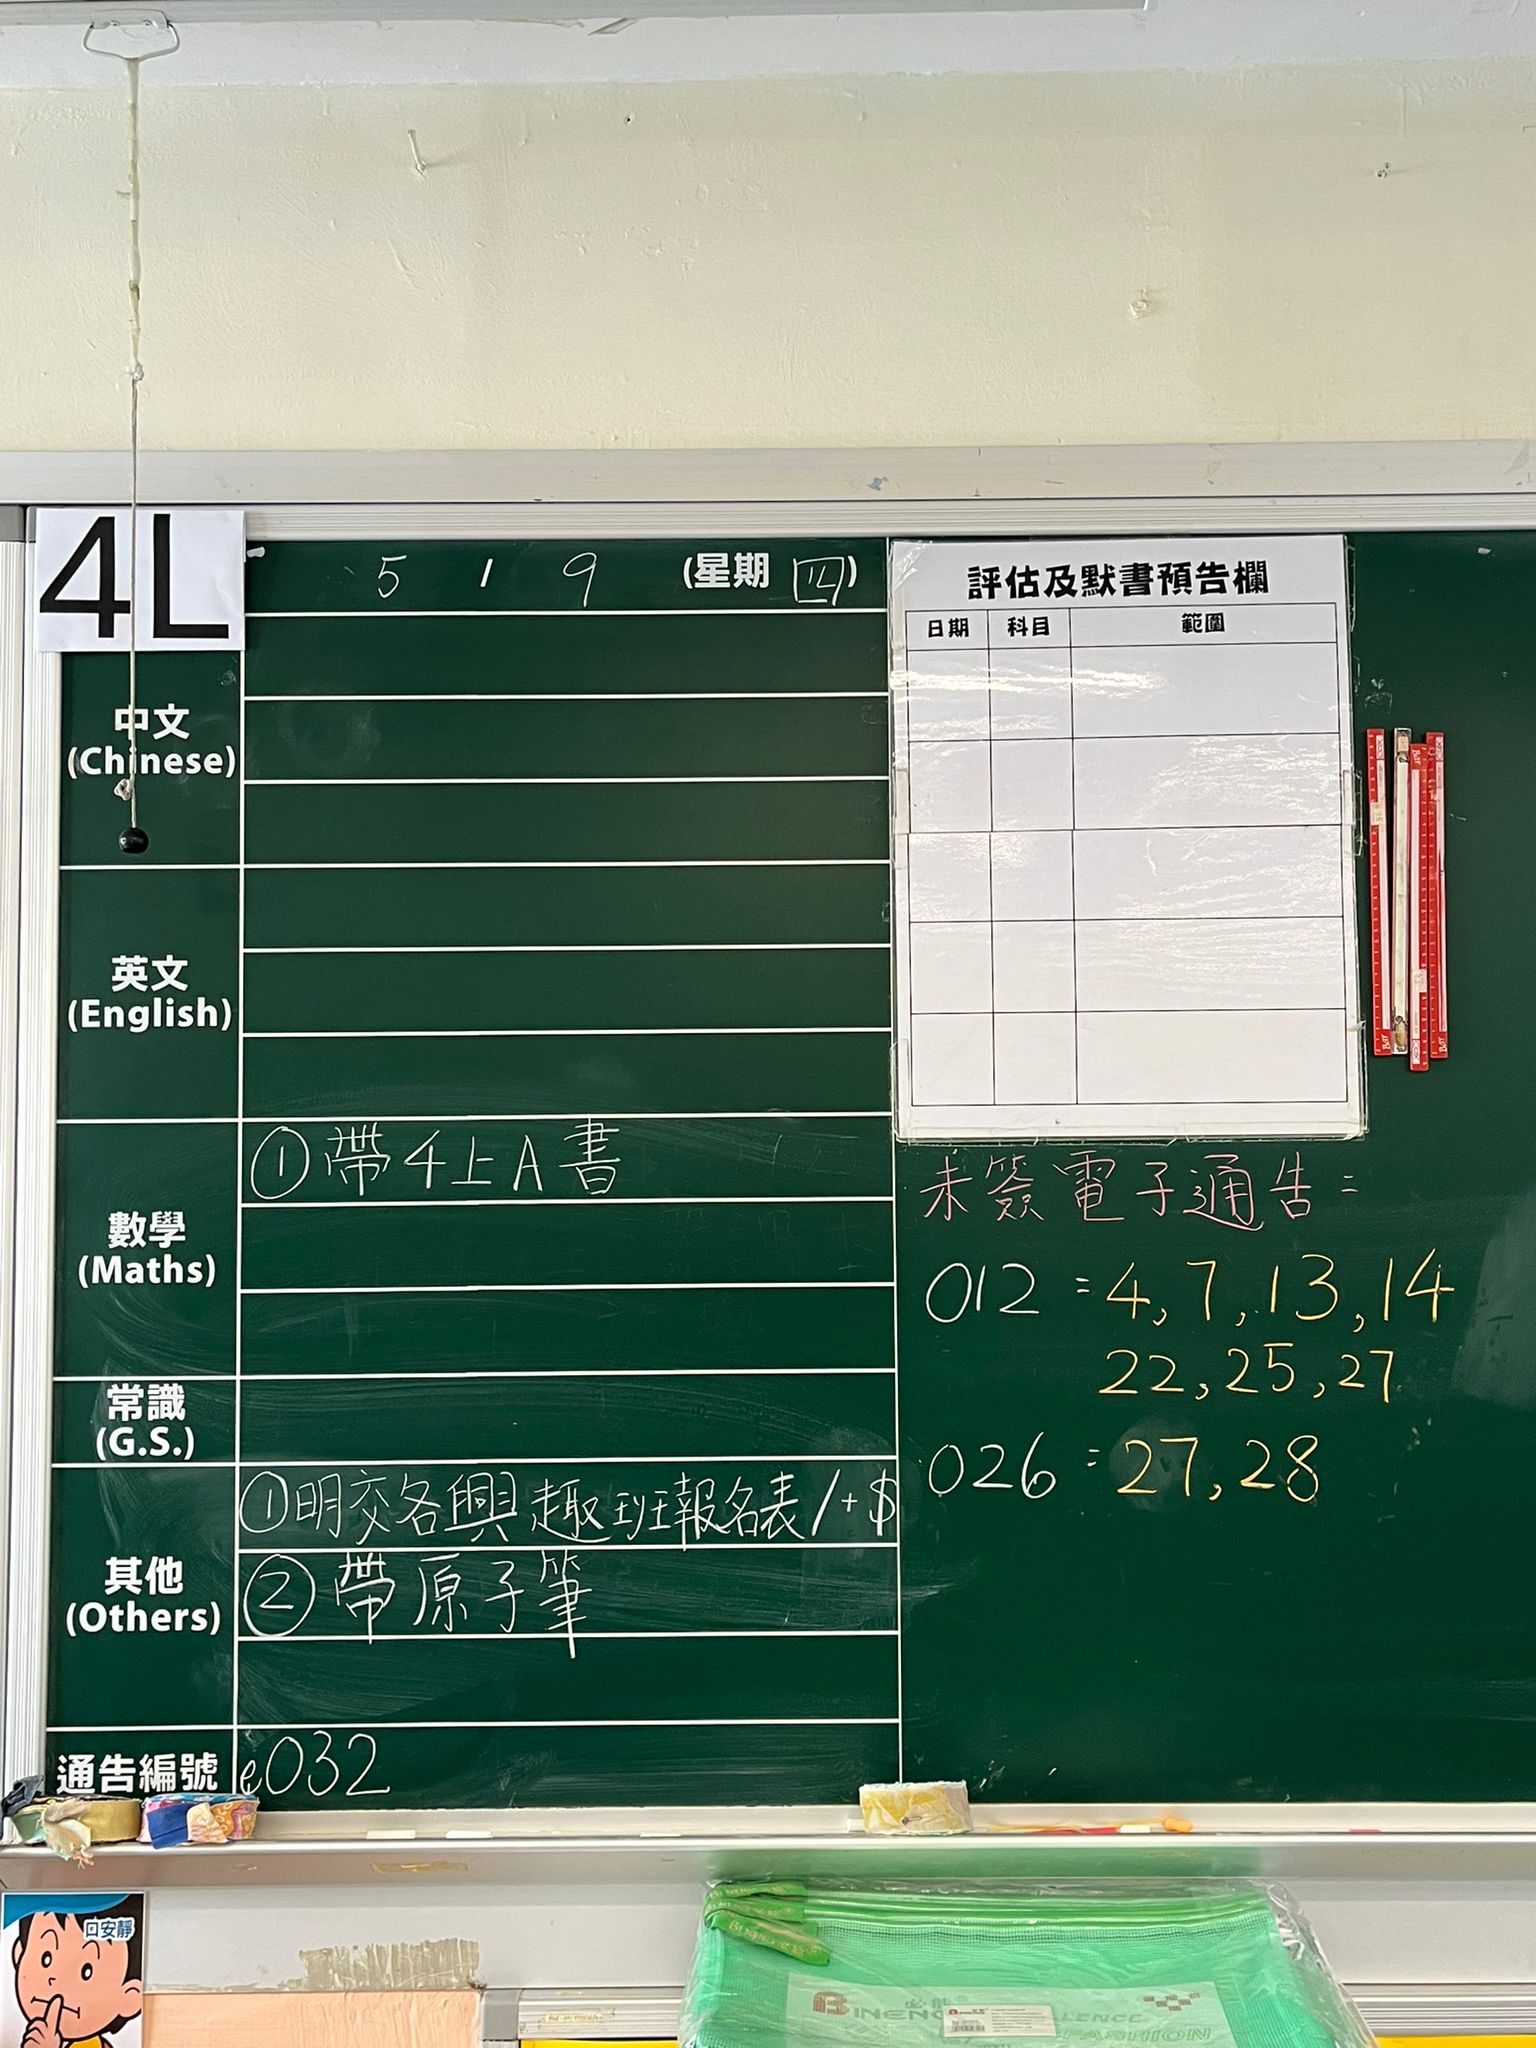 4L
5 / 9 (星期 四)
中文
(Chinese)
英文
(English)
數學
(Maths)
① 帶4上A書
常識
(G.S.)
其他
(Others)
① 明交各興趣班報名表/+$
② 帶原子筆
通告編號
e032
評估及默書預告欄
日期 科目 範圍
未簽電子通告:
012 : 4, 7, 13, 14
22, 25, 27
026 : 27, 28
口安靜